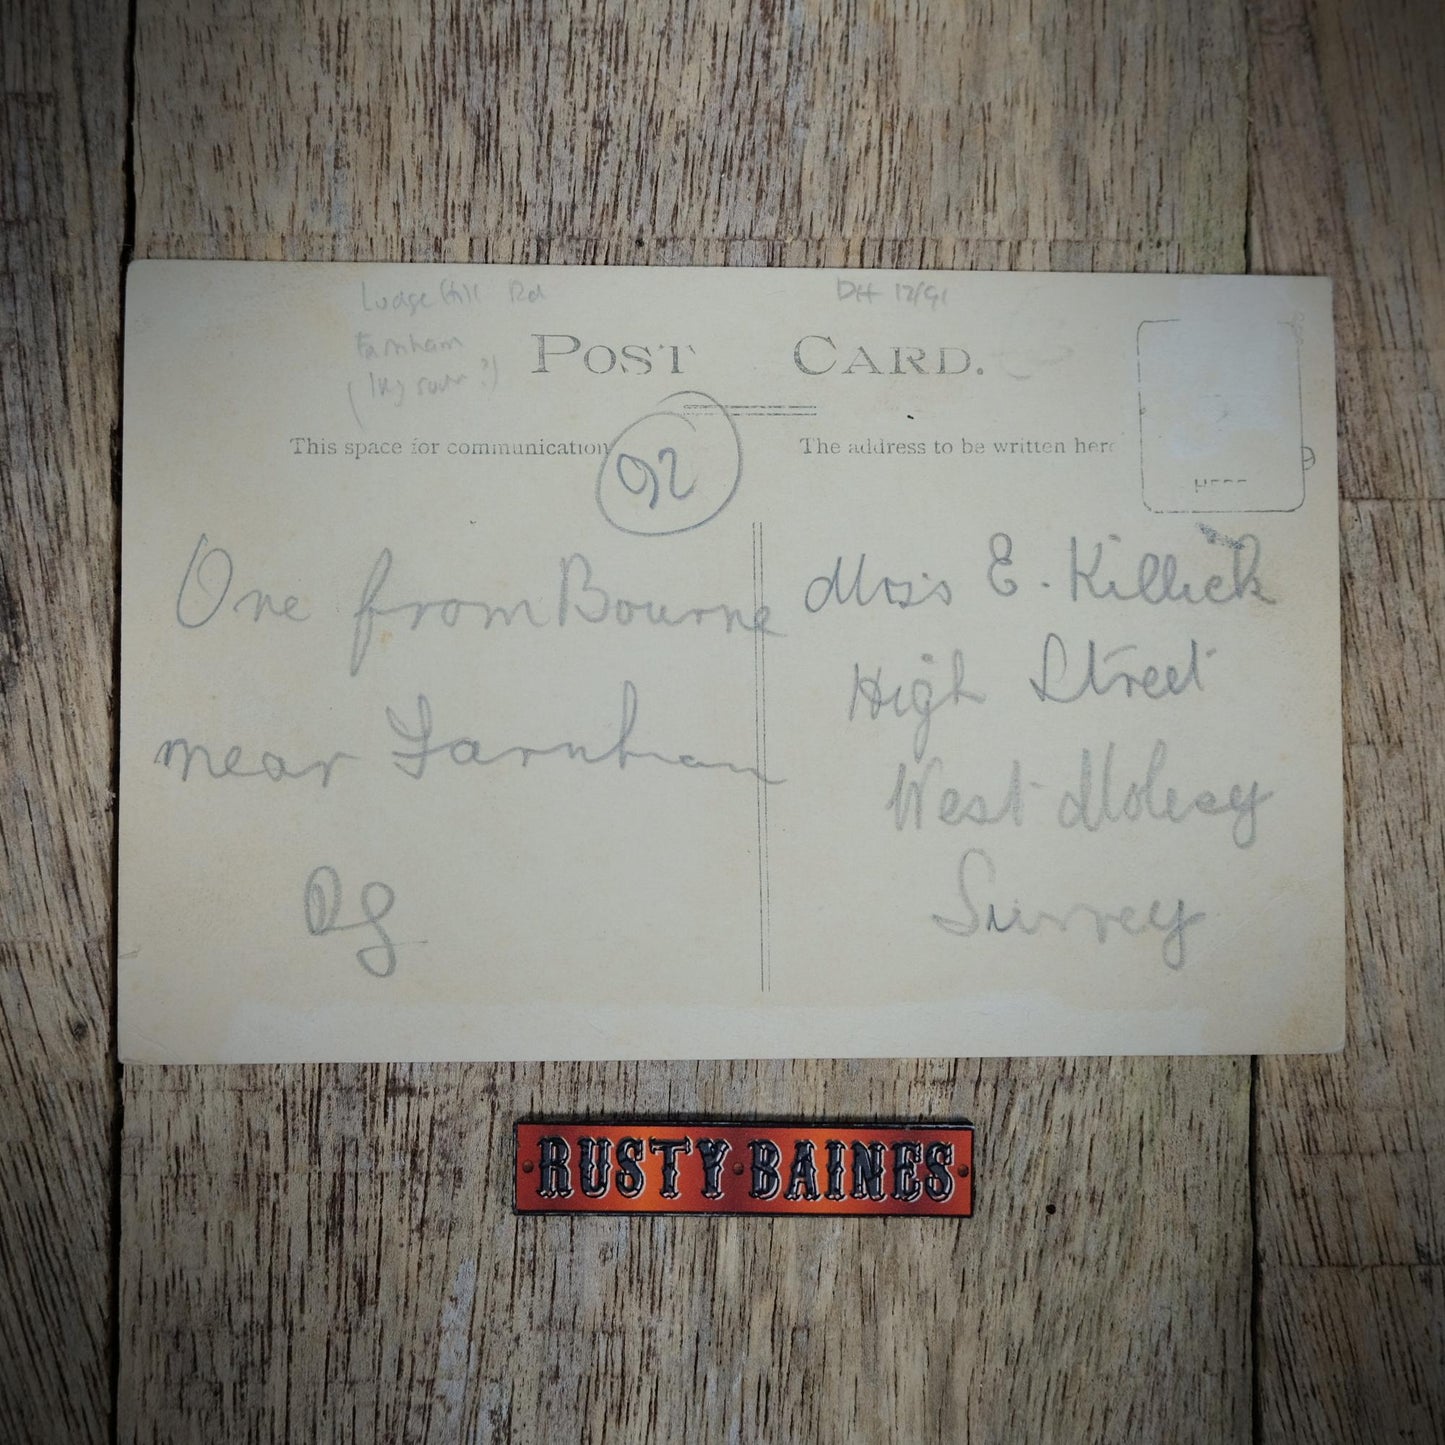 Lodge Hill Rd
Farnham
DH 12/91
POST CARD.
This space for communication
92
The address to be written here
HERE
One from Bourne
near Farnham
Miss E. Killick
High Street
West Molesey
Surrey
RUSTY BAINES